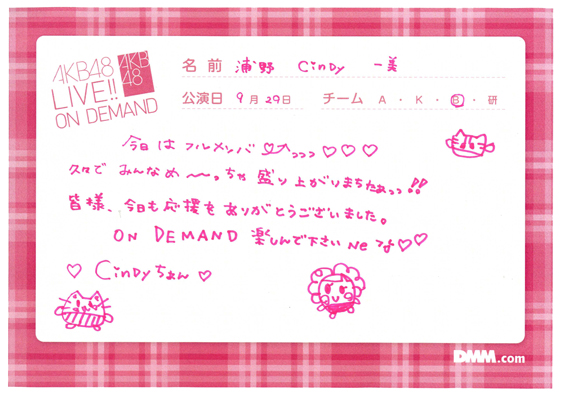 AKB48
LIVE!!
ON DEMAND
AKB
48
名前 浦野 Cindy 一美
公演日 9月29日 チーム A・K・B・研
今日は フルメンバ
久々で みんなめ〜〜っちゃ 盛り上がりまちたぁっっ!!
皆様、今日も応援をありがとうございました。
ON DEMAND 楽しんで下さい Ne
♡ Cindyちぁん ♡
DMM.com